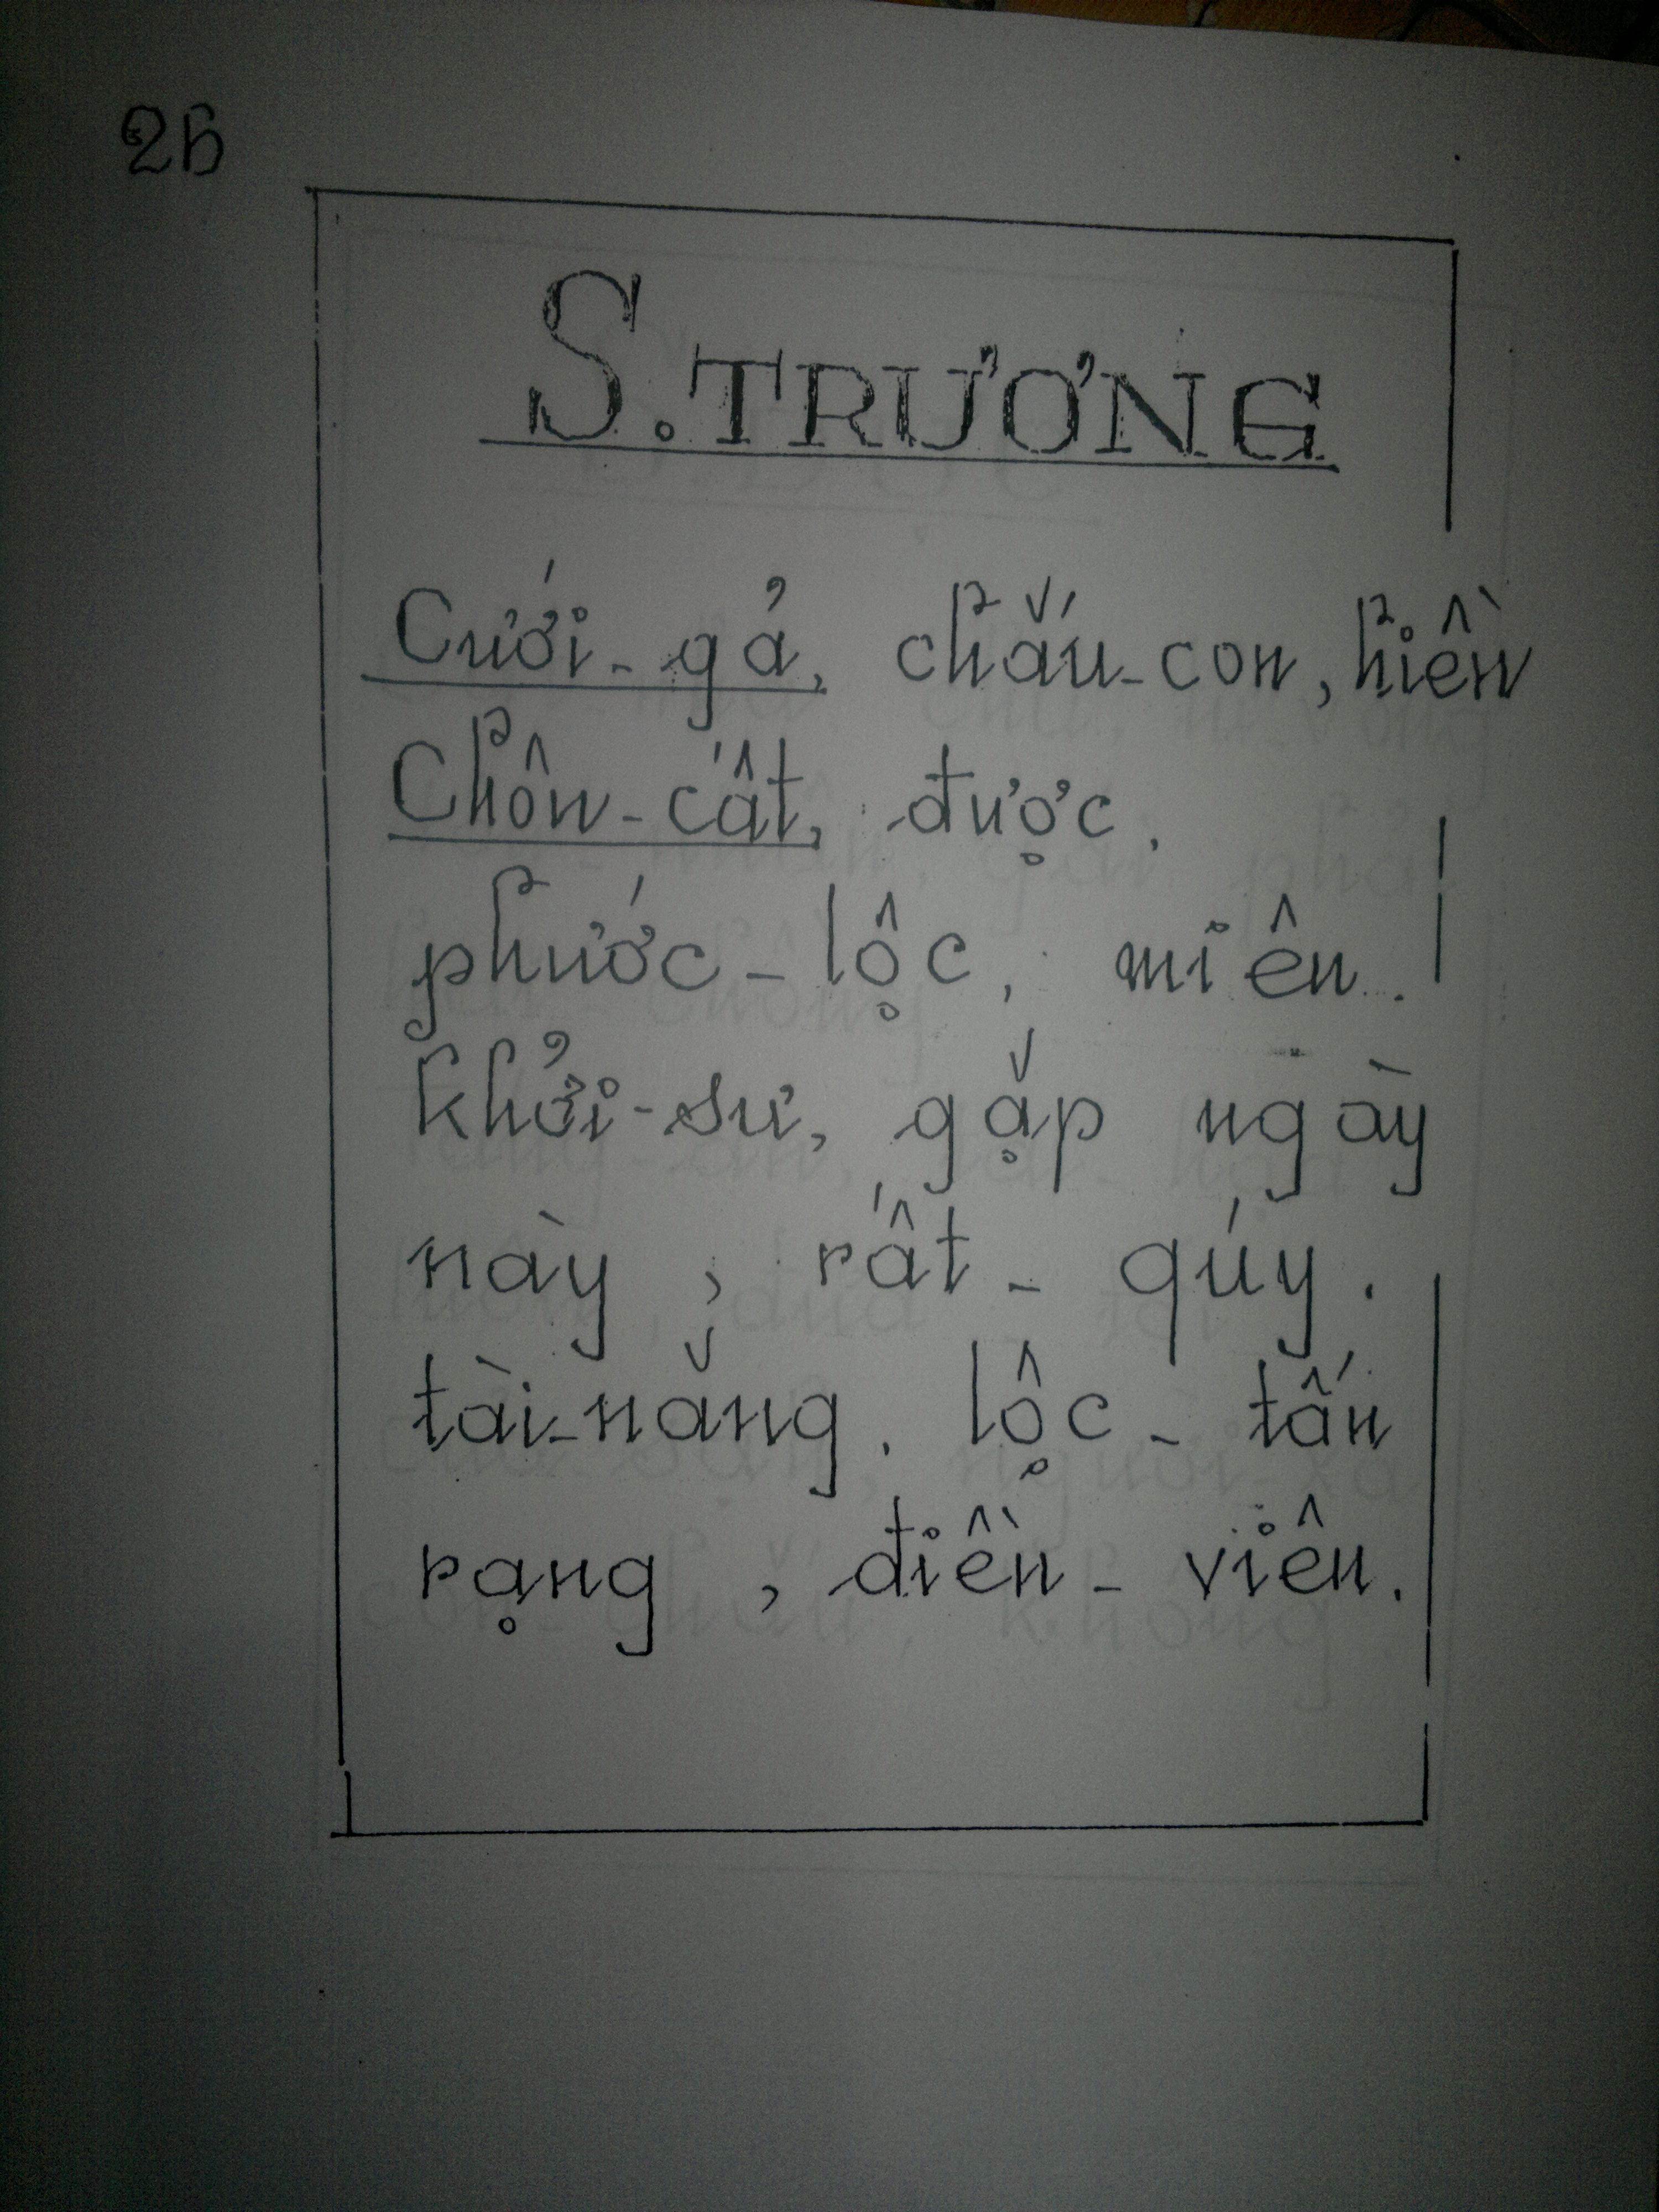 26
S. TRƯƠNG
Cưới-gả, chắu-con, hiền
Chôn-cất, được.
phước-lộc, miên.
khởi-sư, gặp ngày
này, rất-qúy.
tài-năng. lộc-tấn
rạng, điền-viên.